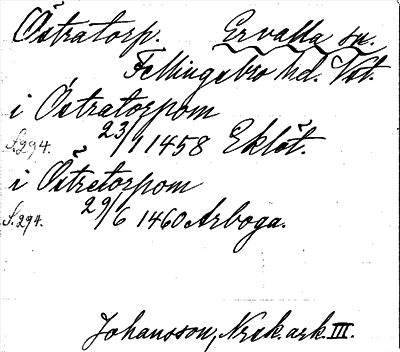 Östratorp. Ervalla sn.
Fellingsbro hd. Vst.
i Östratorpom
S.294. 23/1 1458 Eklöt.
i Östretorpom
S.294. 29/6 1460 Arboga.
Johansson, Nrsk.ark. III.